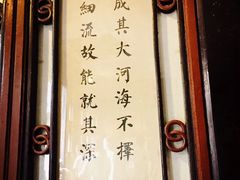 成其大河海不擇
細流故能就其深